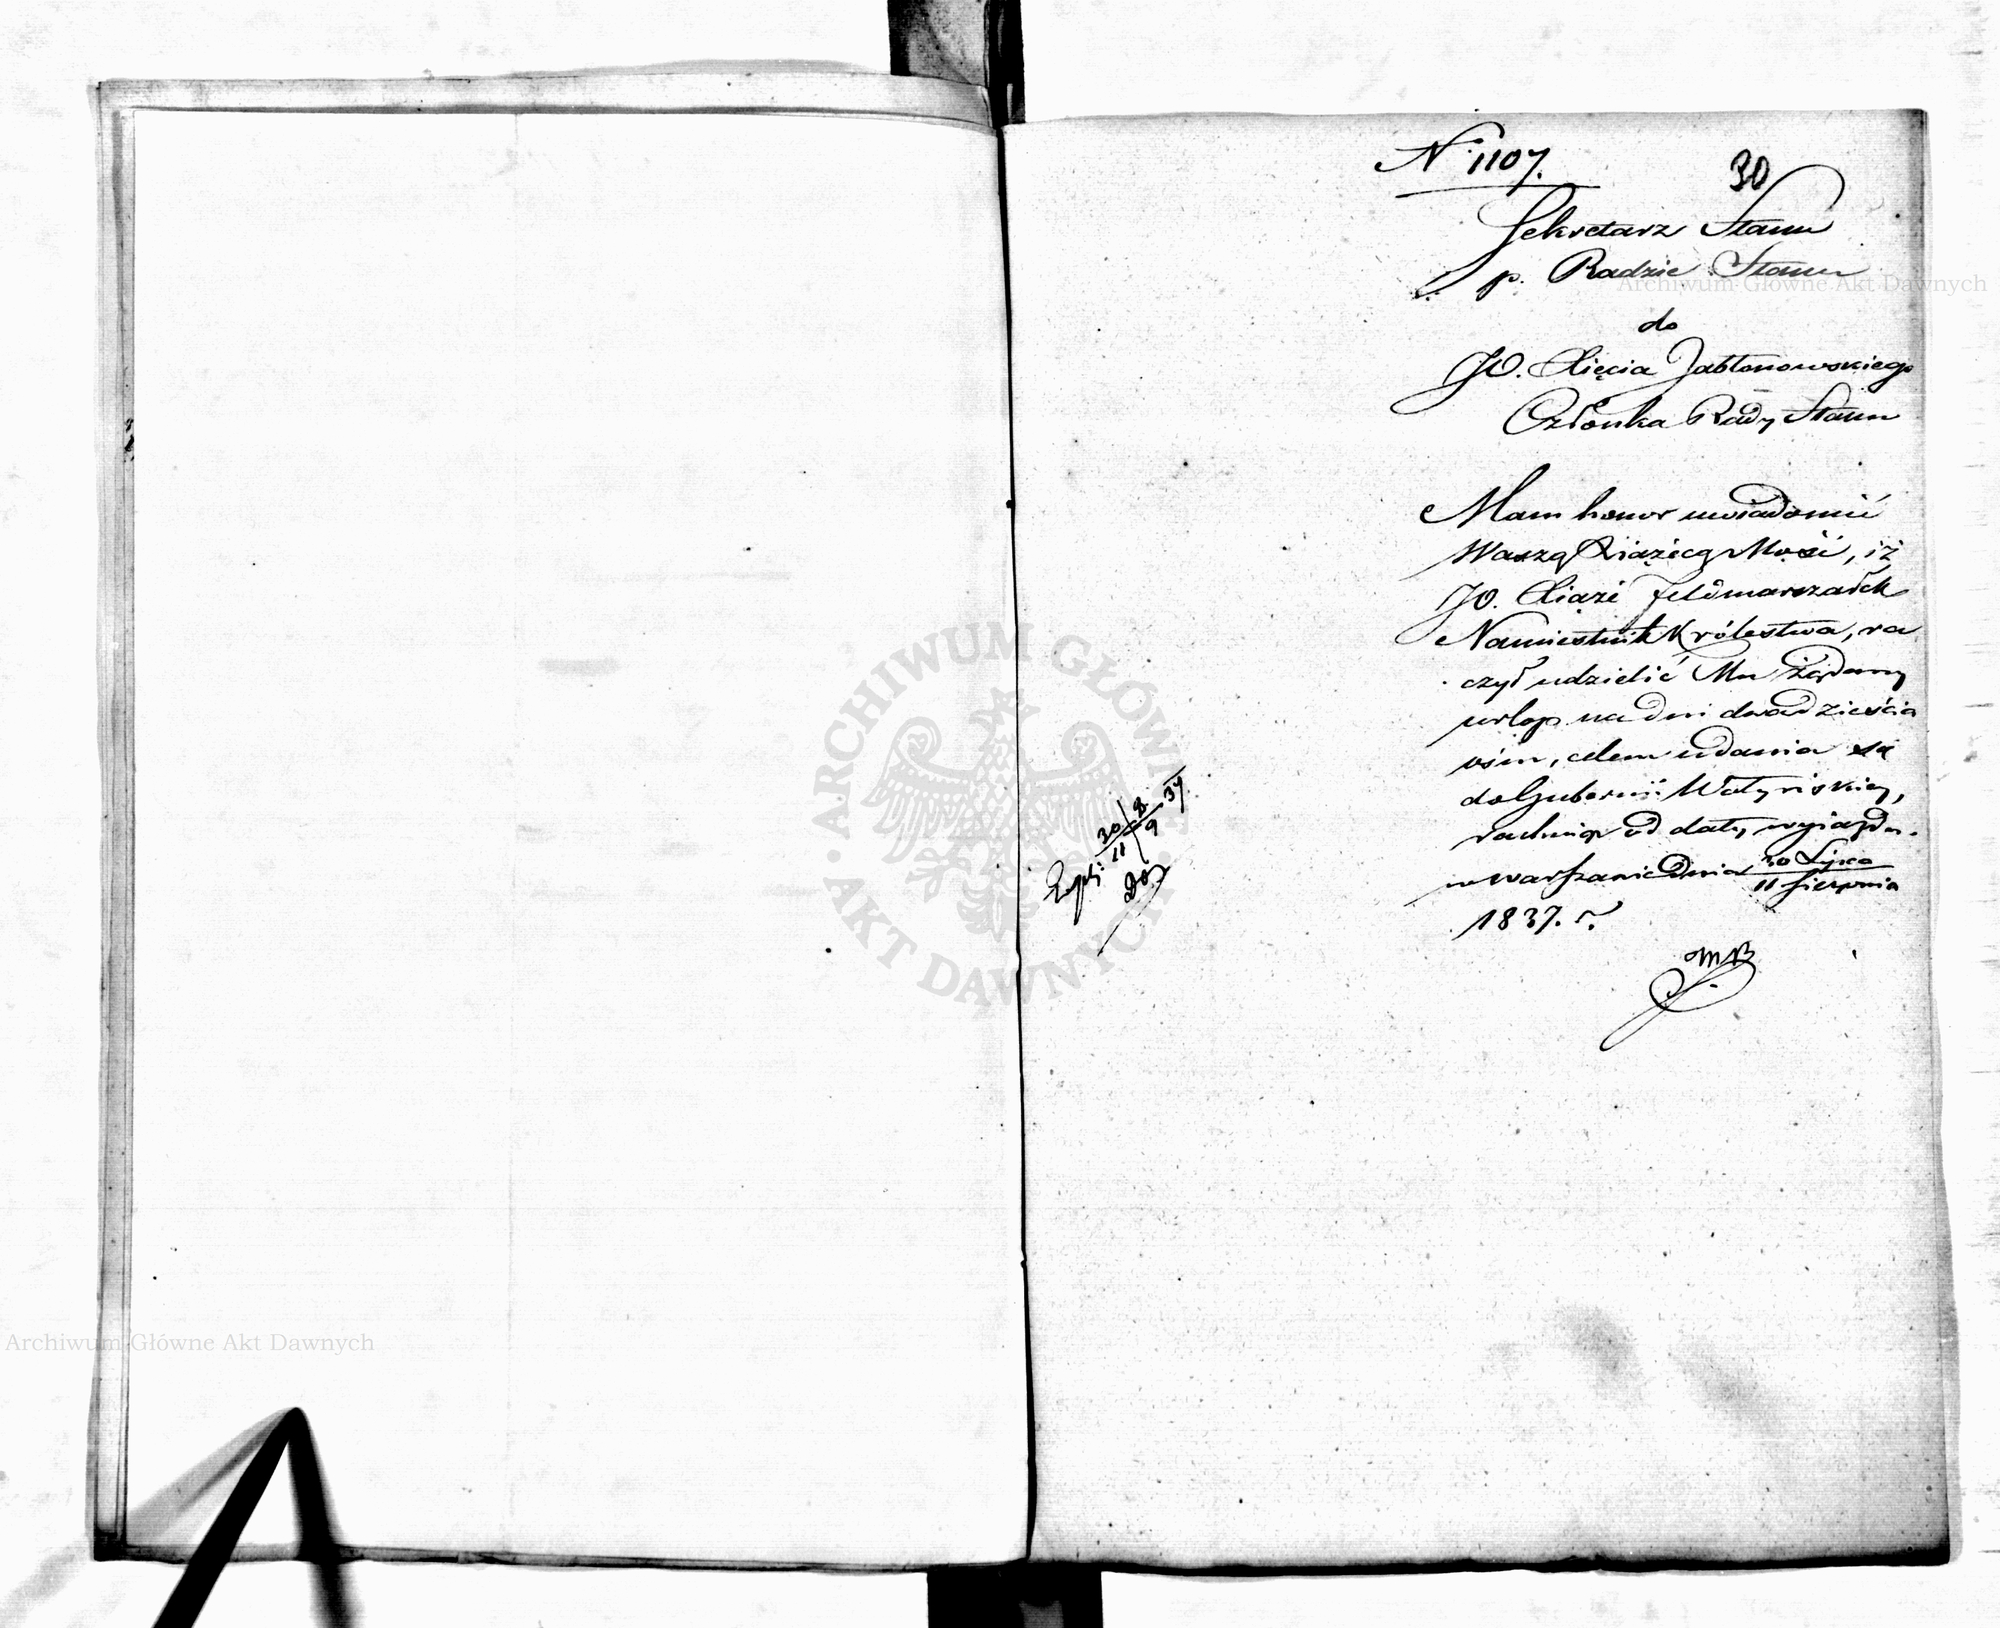 N 1107.
30
Sekretarz Stanu
p. Radzie Stanu
do
JO. Xięcia Jabłonowskiego
Członka Rady Stanu
Mam honor uwiadomić
Waszą Xiążęcą Mość, iż
JO. Xiążę Feldmarszałek
Namiestnik Królestwa, ra
czył udzielić Mu żądany
urlop na dni dwadzieścia
ośm, celem udania się
do Gubernii Wołyńskiey,
rachując od daty wyiazdu.
w Warszawie dnia 30 Lipca
11 Sierpnia
1837. r.
MB
Exp:
30/11 8/9 37
Archiwum Główne Akt Dawnych
Archiwum Główne Akt Dawnych
ARCHIWUM GŁÓWNE
AKT DAWNYCH